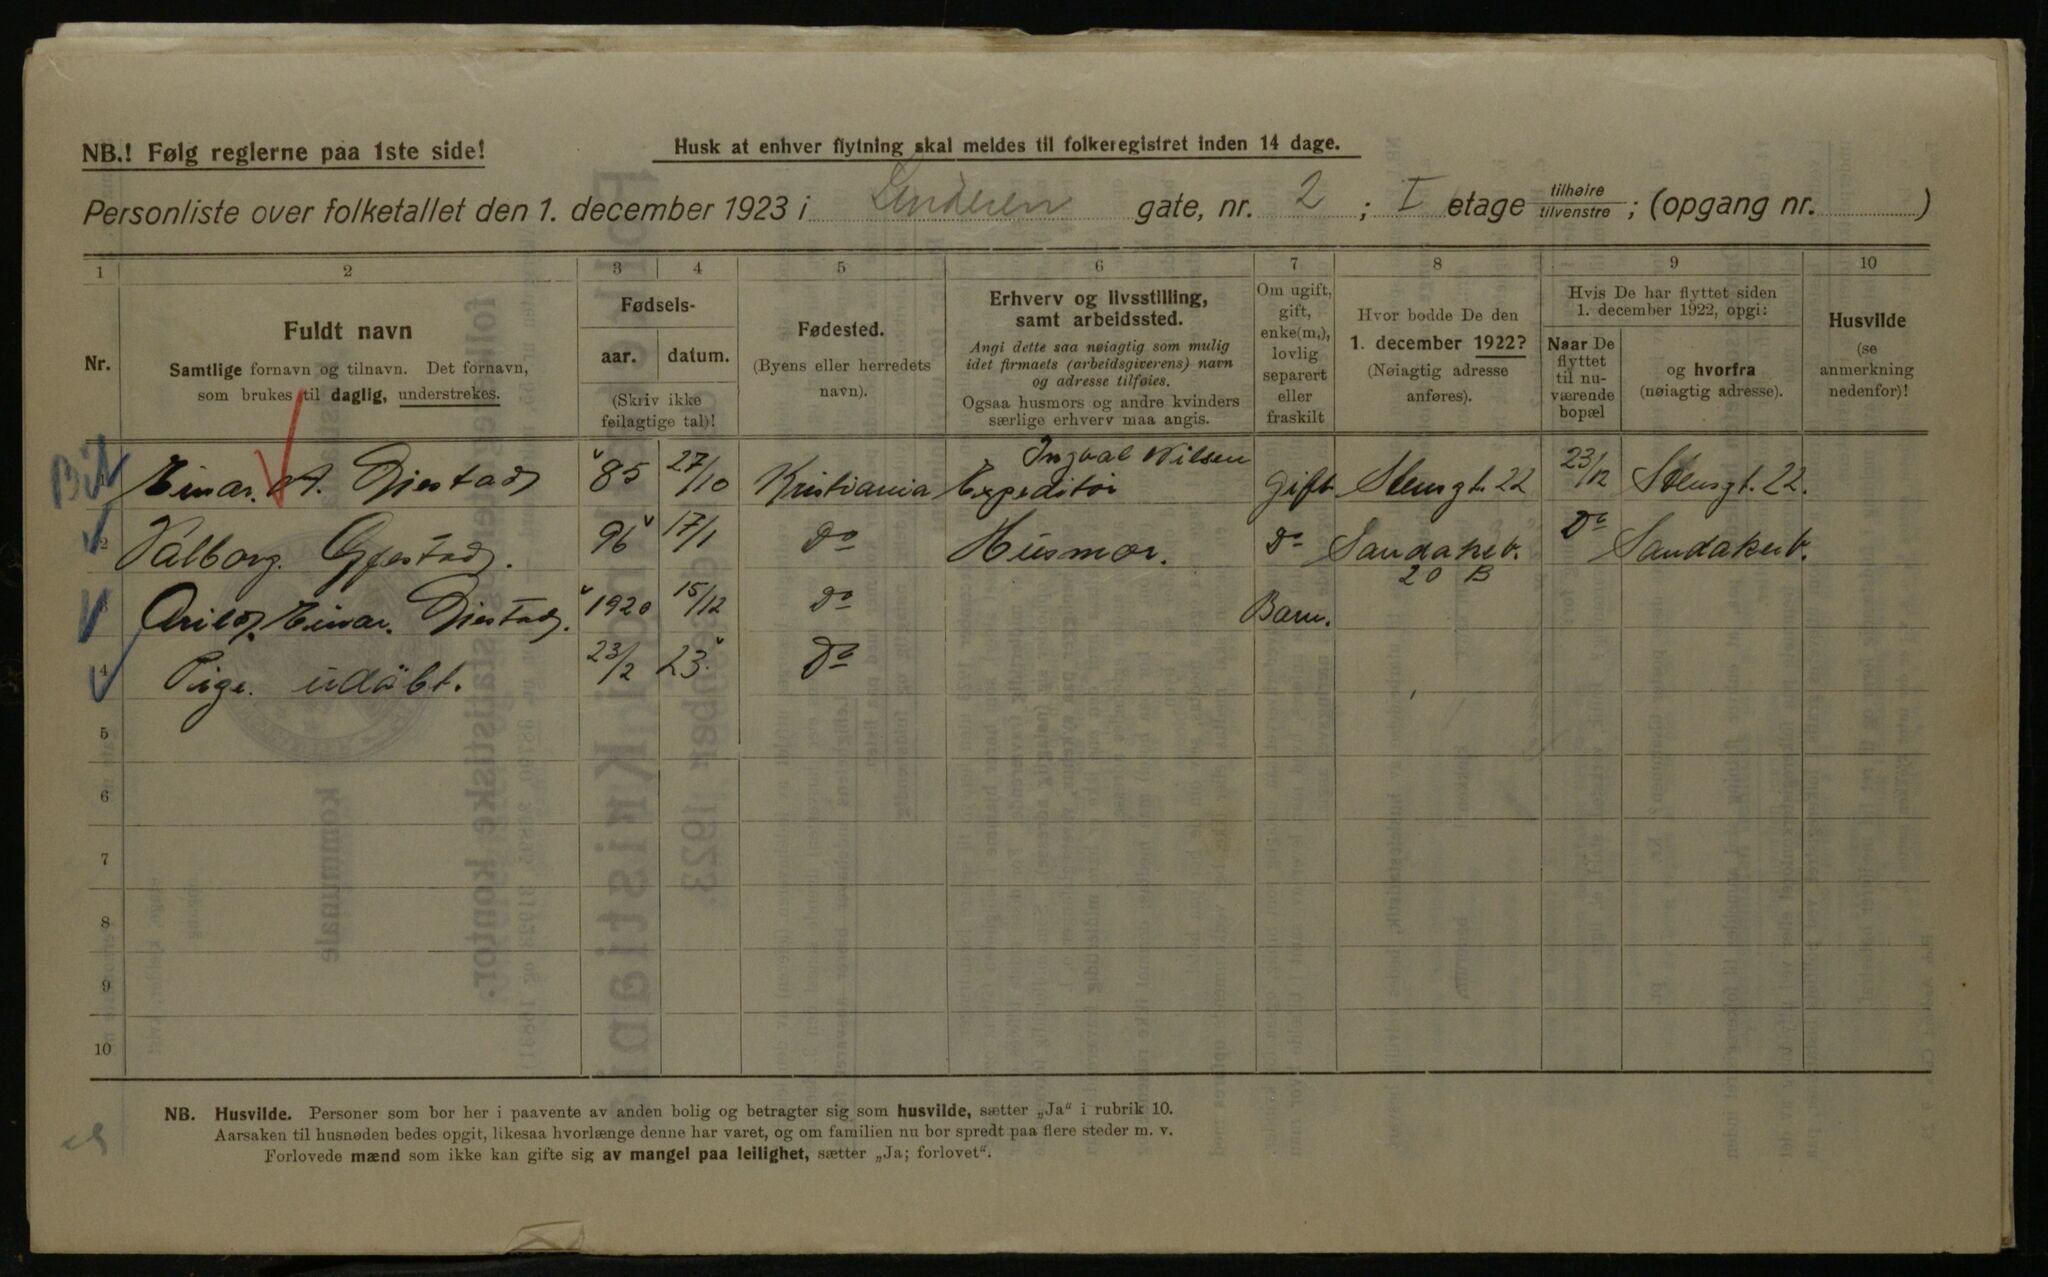 NB.! Følg reglerne paa 1ste side!
Husk at enhver flytning skal meldes til folkeregistret inden 14 dage.
Personliste over folketallet den 1. december 1923 i Lenderen gate, nr. 2 ; I etage tilhøire/tilvenstre ; (opgang nr. )
1 2 3 4 5 6 7 8 9 10
Nr.
Fuldt navn
Samtlige fornavn og tilnavn. Det fornavn,
som brukes til daglig, understrekes.
Fødsels-
aar. datum.
(Skriv ikke
feilagtige tal)!
Fødested.
(Byens eller herredets
navn).
Erhverv og livsstilling,
samt arbeidssted.
Angi dette saa nøiagtig som mulig
idet firmaets (arbeidsgiverens) navn
og adresse tilføies.
Ogsaa husmors og andre kvinders
særlige erhverv maa angis.
Om ugift,
gift,
enke(m.),
lovlig
separert
eller
fraskilt
Hvor bodde De den
1. december 1922?
(Nøiagtig adresse
anføres).
Hvis De har flyttet siden
1. december 1922, opgi:
Naar De
flyttet
til nu-
værende
bopæl
og hvorfra
(nøiagtig adresse).
Husvilde
(se
anmerkning
nedenfor)!
Ingval Nilsen
1 Einar. A. Gjestad 85 27/10 Kristiania Expeditør gift Stensgt. 22 23/12 Stensgt. 22.
2 Valborg. Gjestad. 96 17/1 Do Husmor. Do Sandakerv. Do Sandakerv.
20 B
3 Arild. Einar. Gjestad. 1920 15/12 Do Barn.
4 Pige. udöbt. 23/2 23. Do
5
6
7
8
9
10
NB. Husvilde. Personer som bor her i paavente av anden bolig og betragter sig som husvilde, sætter „Ja“ i rubrik 10.
Aarsaken til husnøden bedes opgit, likesaa hvorlænge denne har varet, og om familien nu bor spredt paa flere steder m. v.
Forlovede mænd som ikke kan gifte sig av mangel paa leilighet, sætter „Ja; forlovet“.